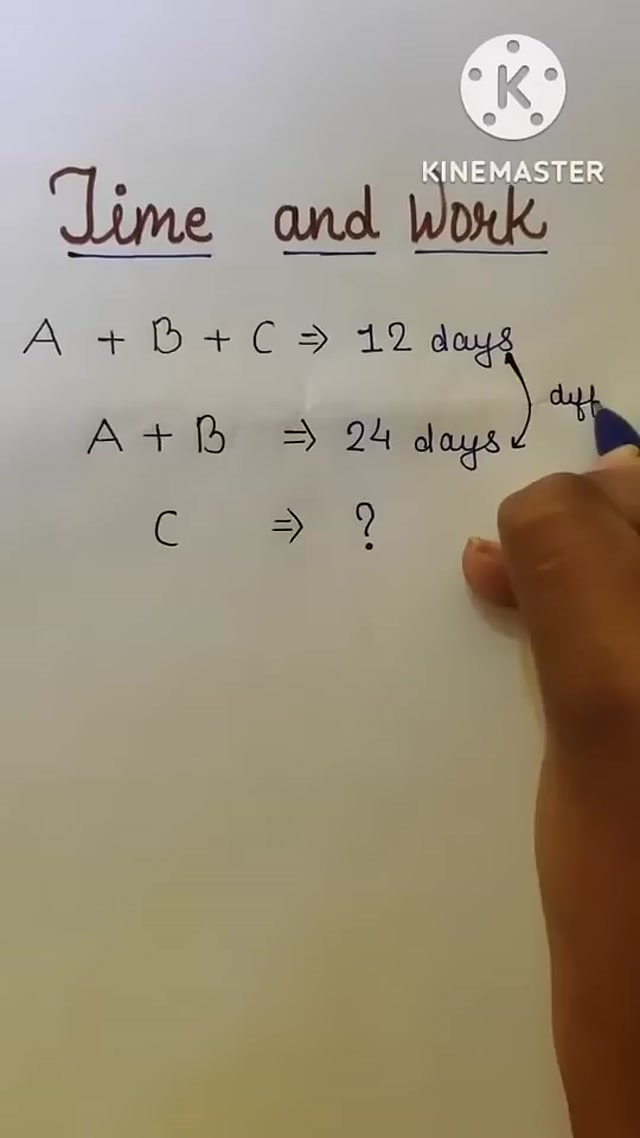 K
KINEMASTER
Time and Work
A + B + C ⇒ 12 days
diff
A + B ⇒ 24 days
C ⇒ ?